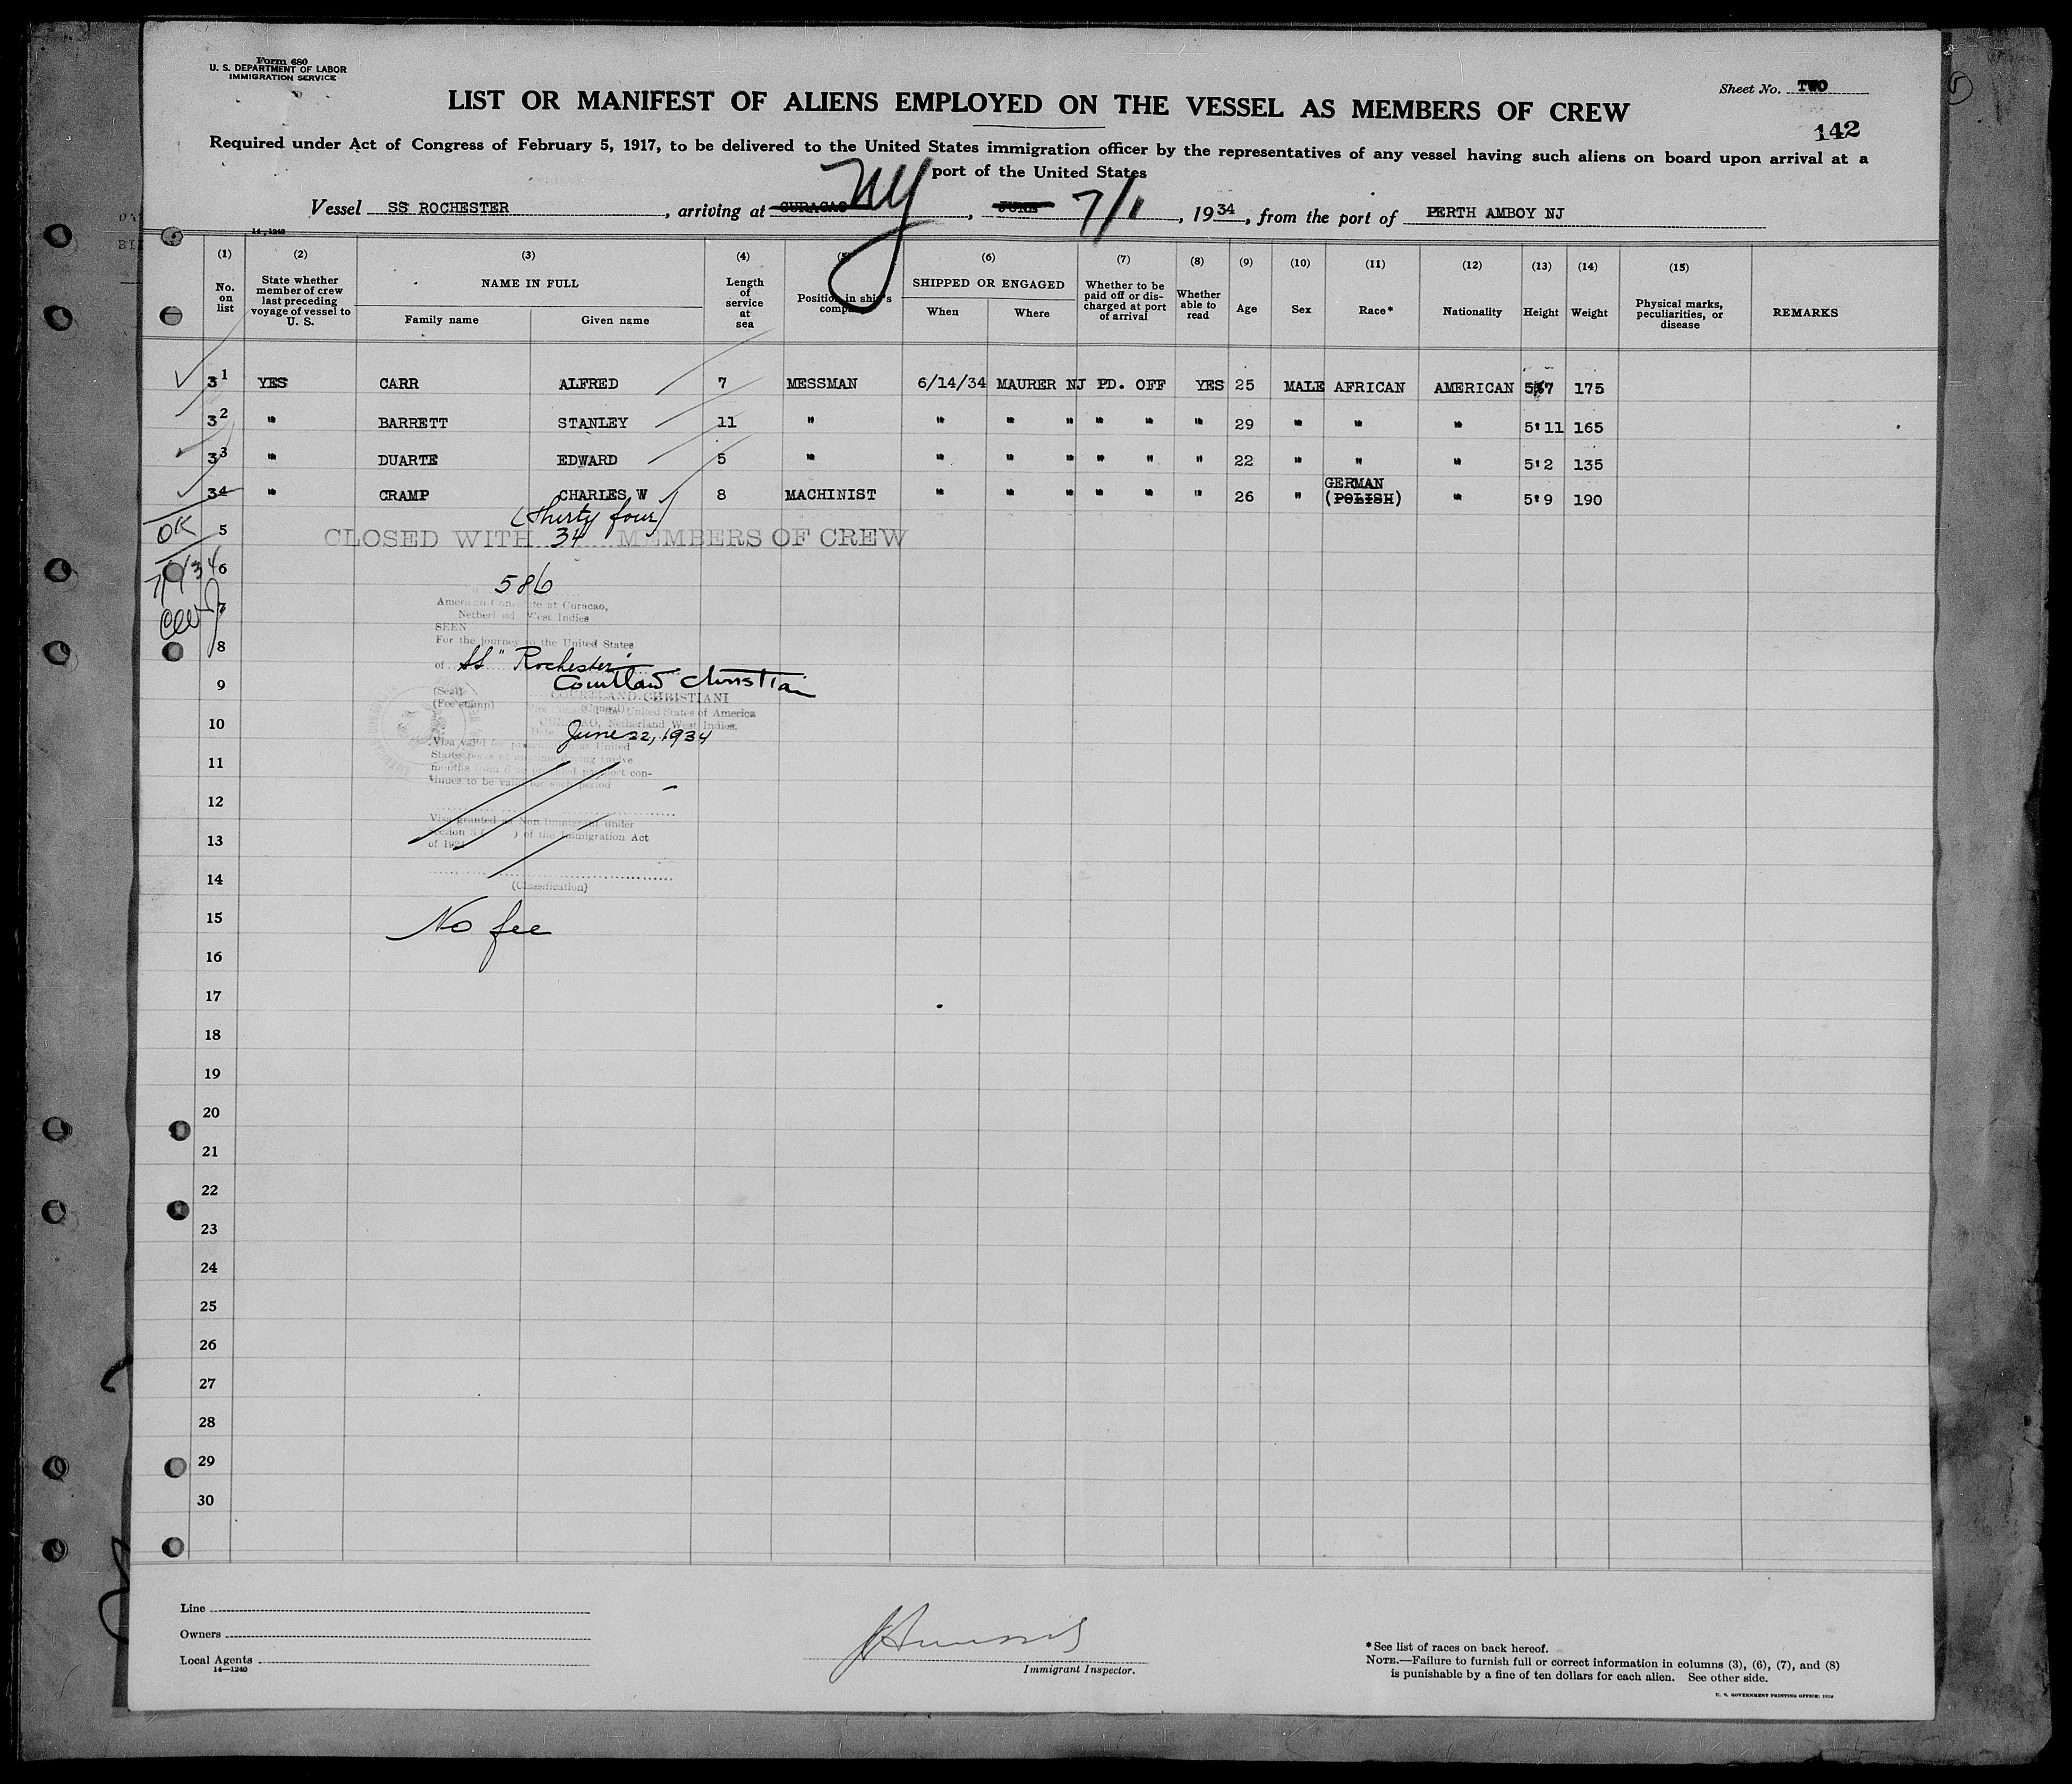 Form 680
U. S. DEPARTMENT OF LABOR
IMMIGRATION SERVICE
Sheet No. TWO
LIST OR MANIFEST OF ALIENS EMPLOYED ON THE VESSEL AS MEMBERS OF CREW
142
Required under Act of Congress of February 5, 1917, to be delivered to the United States immigration officer by the representatives of any vessel having such aliens on board upon arrival at a
port of the United States
Vessel SS ROCHESTER, arriving at CURACAO NY, JUNE 7/1, 1934, from the port of PERTH AMBOY NJ
14-1240
(1) (2) (3) (4) (5) (6) (7) (8) (9) (10) (11) (12) (13) (14) (15)
No. on list
State whether member of crew last preceding voyage of vessel to U. S.
NAME IN FULL
Family name Given name
Length of service at sea
Position in ship's company
SHIPPED OR ENGAGED
When Where
Whether to be paid off or discharged at port of arrival
Whether able to read
Age Sex Race* Nationality Height Weight
Physical marks, peculiarities, or disease
REMARKS
31 YES CARR ALFRED 7 MESSMAN 6/14/34 MAURER NJ PD. OFF YES 25 MALE AFRICAN AMERICAN 5'7 175
32 " BARRETT STANLEY 11 " " " " " " " 29 " " " 5'11 165
33 " DUARTE EDWARD 5 " " " " " " " 22 " " " 5'2 135
34 " CRAMP CHARLES W 8 MACHINIST " " " " " " 26 " GERMAN (POLISH) " 5'9 190
(thirty four)
OK 5 CLOSED WITH 34 MEMBERS OF CREW
6
586
7
American Consulate at Curacao,
Netherland West Indies
SEEN
For the journey to the United States
8
of SS "Rochester"
9
Courtland Christiani
(Seal) COURTLAND CHRISTIANI
(Fee stamp) Vice Consul of the United States of America
10
CURACAO, Netherland West Indies.
June 22, 1934
11
Visa valid for presentation at United
States ports at any time during twelve
months from date provided passport con-
tinues to be valid for such period
12
Visa granted as Non immigrant under
Section 3 ( ) of the Immigration Act
13
of 1924
14
(Classification)
15 No fee
16
17
18
19
20
21
22
23
24
25
26
27
28
29
30
Line
Owners
Local Agents
14—1240
Immigrant Inspector.
*See list of races on back hereof.
NOTE.—Failure to furnish full or correct information in columns (3), (6), (7), and (8)
is punishable by a fine of ten dollars for each alien. See other side.